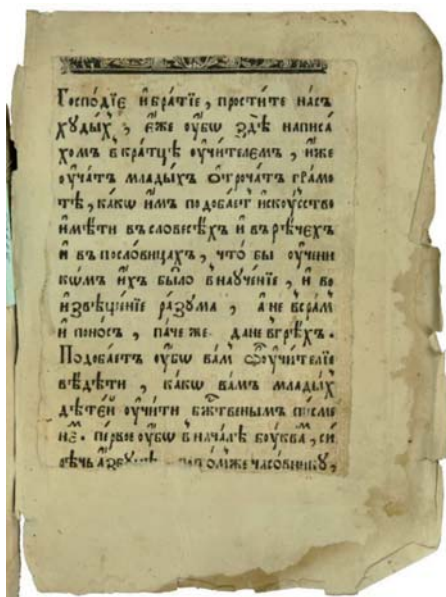 Госпо́дїе и҆бра́тїе, прости́те на́съ
худы́хъ, є҆́же ᲂу҆́бѡ здѣ̀ написа́
хомъ вкра́тцѣ ᲂу҆чи́телемъ, и҆́же
ᲂу҆ча́тъ млады́хъ ѻ҆троча́тъ гра́мо
тѣ, ка́кѡ и҆̀мъ подоба́етъ и҆скꙋ́сство
и҆мѣ́ти въсловесѣ́хъ и҆ врѣ́чехъ
и҆ въпосло́вицахъ, что́ бы ᲂу҆чени
кѡ́мъ и҆́хъ бы́ло внаꙋче́нїе, и҆ во
и҆звѣще́нїе ра́зума, а҆ не всра́мъ
и҆ поно́съ, па́че же да не вгрѣ́хъ.
Подоба́етъ ᲂу҆́бѡ ва́мъ ѽᲂу҆чи́телїе
вѣ́дѣти, ка́кѡ ва́мъ млады́хъ
дѣте́й ᲂу҆чи́ти бжⷭ҇твенымъ писме
не́мъ. пе́рвое ᲂу҆́бѡ внача́лѣ бо́уква, си
рѣ́чь же часо́внику,